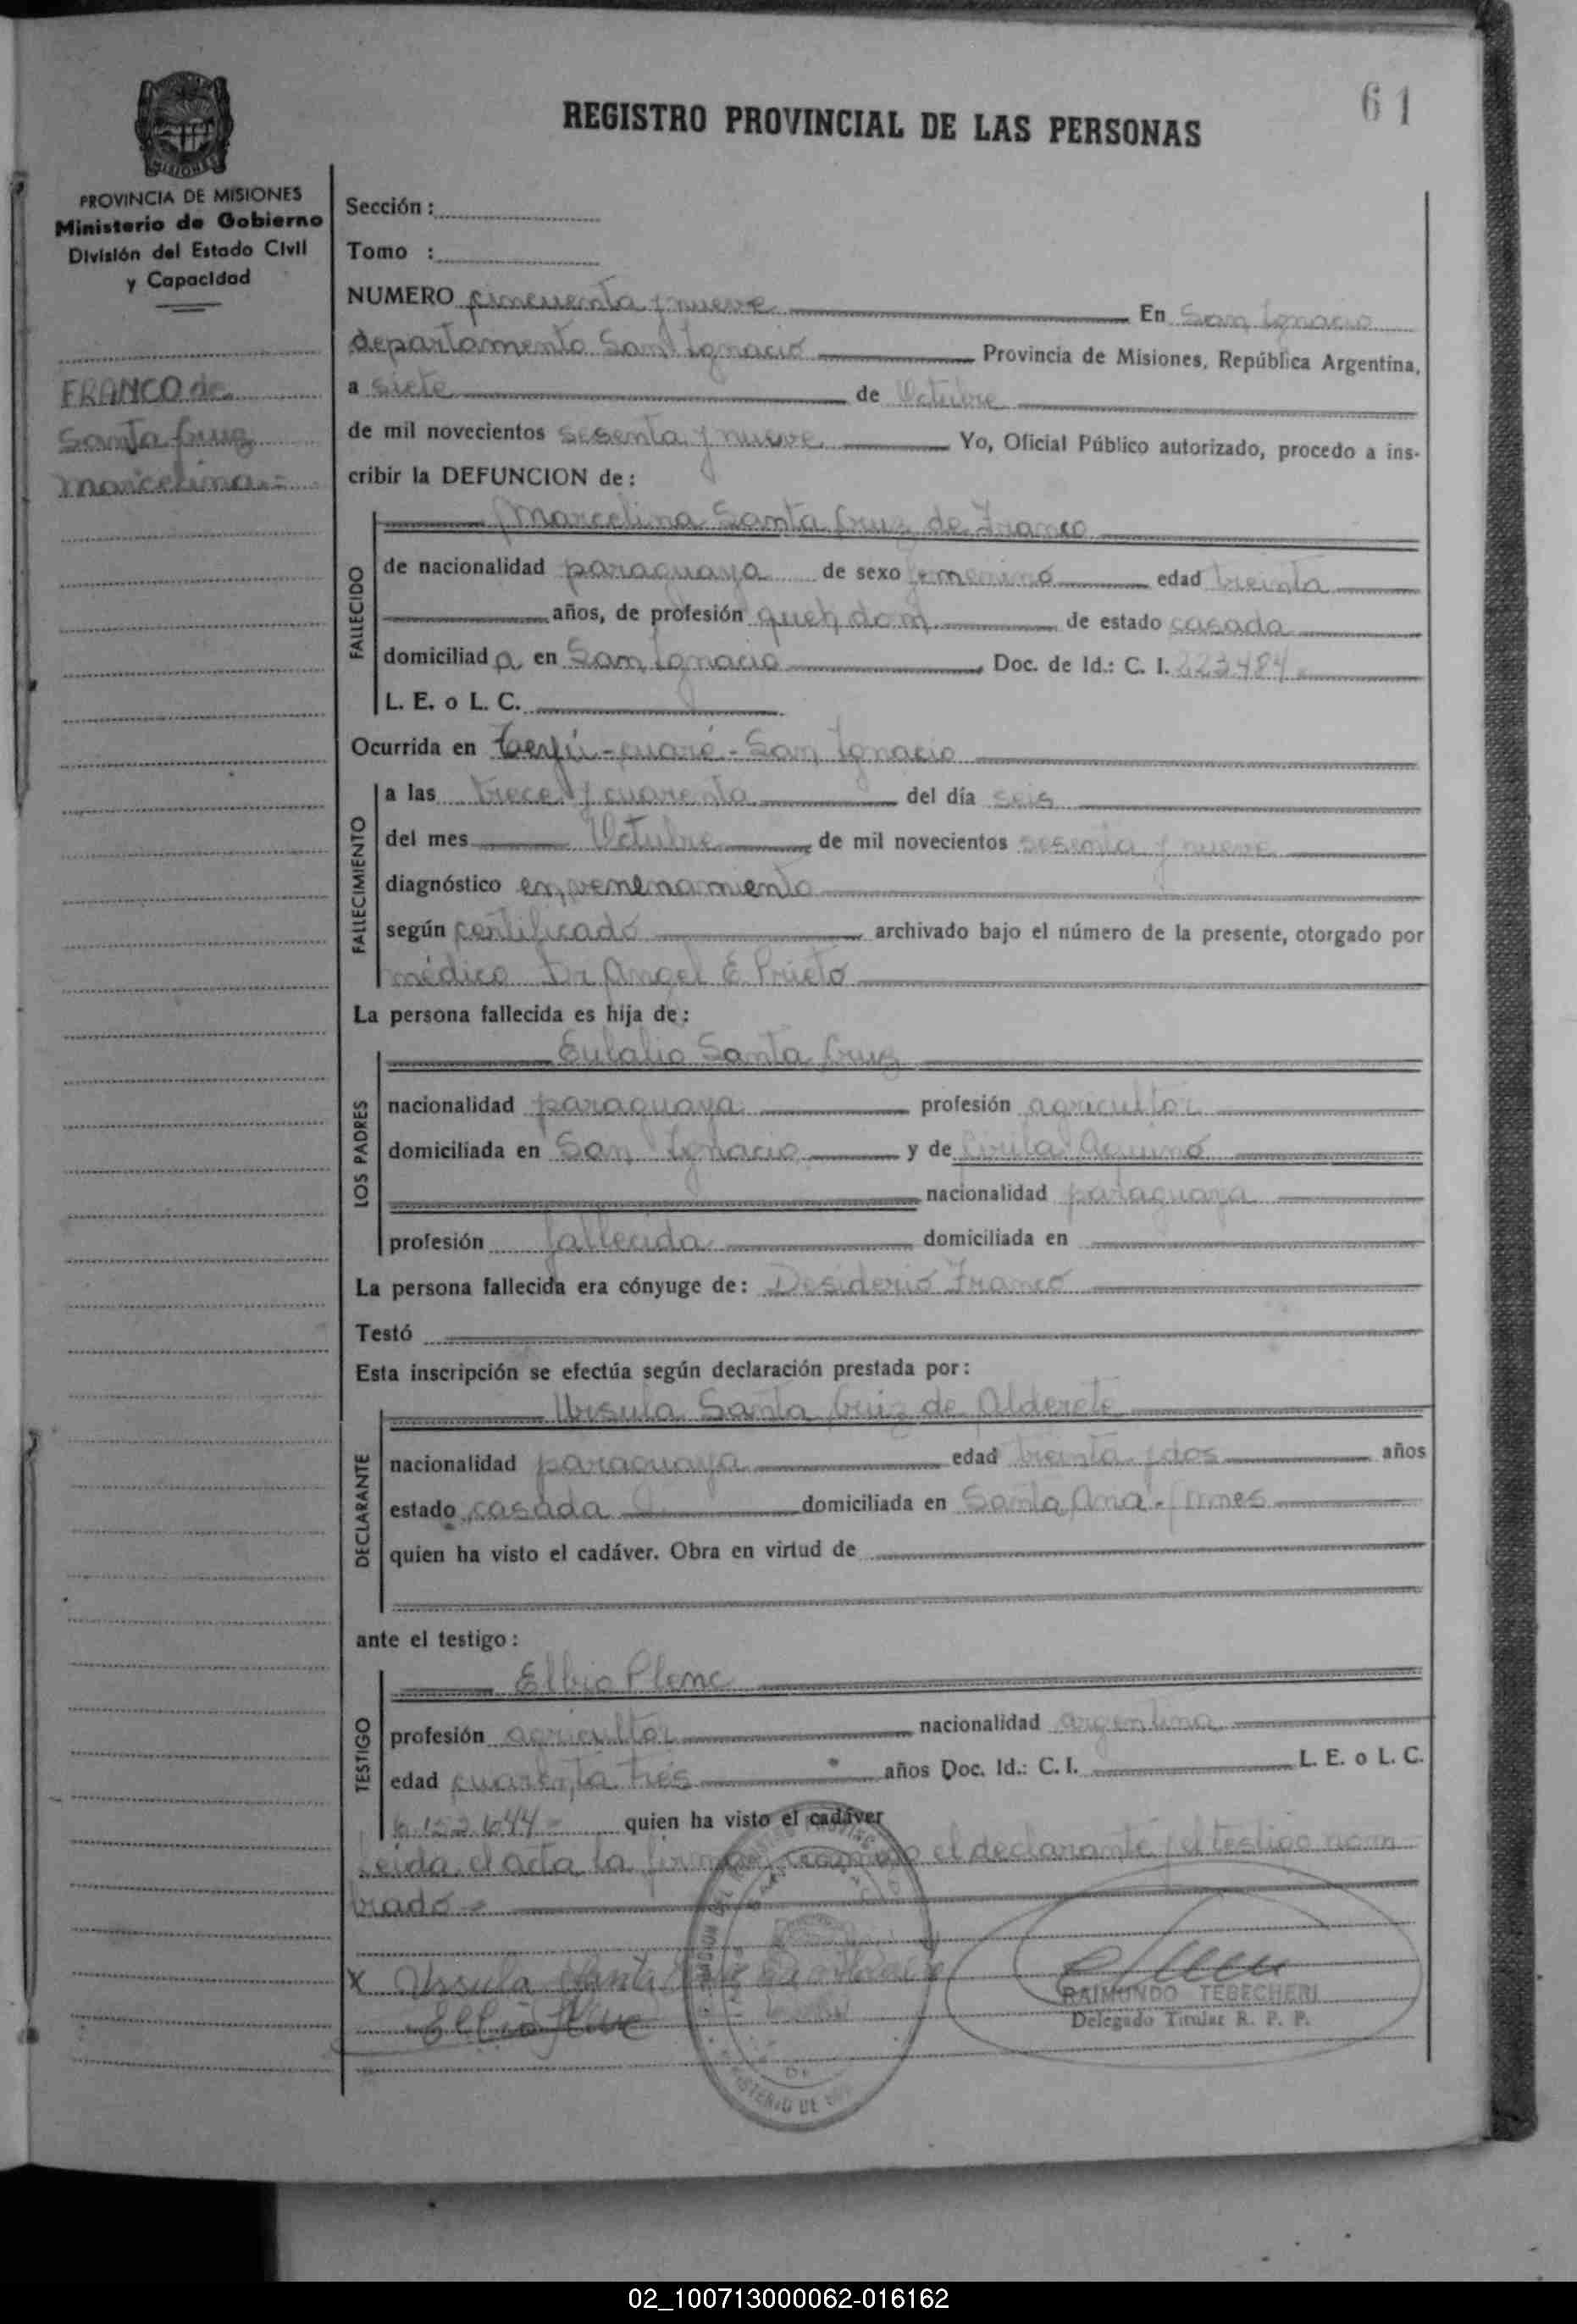 61
REGISTRO PROVINCIAL DE LAS PERSONAS
MISIONES
PROVINCIA DE MISIONES
Ministerio de Gobierno
División del Estado Civil
y Capacidad
FRANCO de
Santa Cruz
Marcelina.=
Sección :
Tomo :
NUMERO cincuenta y nueve En San Ignacio
departamento San Ignacio Provincia de Misiones, República Argentina,
a siete de Octubre
de mil novecientos sesenta y nueve Yo, Oficial Público autorizado, procedo a ins-
cribir la DEFUNCION de :
FALLECIDO
Marcelina Santa Cruz de Franco
de nacionalidad paraguaya de sexo femenino edad treinta
años, de profesión queh, dom de estado casada
domiciliad a en San Ignacio Doc. de Id.: C. I. 223484
L. E. o L. C.
Ocurrida en -cuaré- San Ignacio
FALLECIMIENTO
a las trece y cuarenta del día seis
del mes Octubre de mil novecientos sesenta y nueve
diagnóstico envenenamiento
según certificado archivado bajo el número de la presente, otorgado por
médico Dr Angel E. Prieto
La persona fallecida es hija de :
LOS PADRES
Eulalio Santa Cruz
nacionalidad paraguaya profesión agricultor
domiciliada en San Ignacio y de Cirila Aquino
nacionalidad paraguaya
profesión fallecida domiciliada en
La persona fallecida era cónyuge de : Desiderio Franco
Testó
Esta inscripción se efectúa según declaración prestada por :
DECLARANTE
Ursula Santa Cruz de Alderete
nacionalidad paraguaya edad treinta y dos años
estado casada domiciliada en Santa Ana - Mnes
quien ha visto el cadáver. Obra en virtud de
ante el testigo :
TESTIGO
Elbio Plenc
profesión agricultor nacionalidad argentina
edad cuarenta tres años Doc. Id.: C. I. L. E. o L. C.
quien ha visto el cadáver
Leida el acta la firman conmigo el declarante y el testigo nom
brado =
x Ursula Santa
RAIMUNDO TEBECHERI
Delegado Titular R. P. P.
02_100713000062-016162